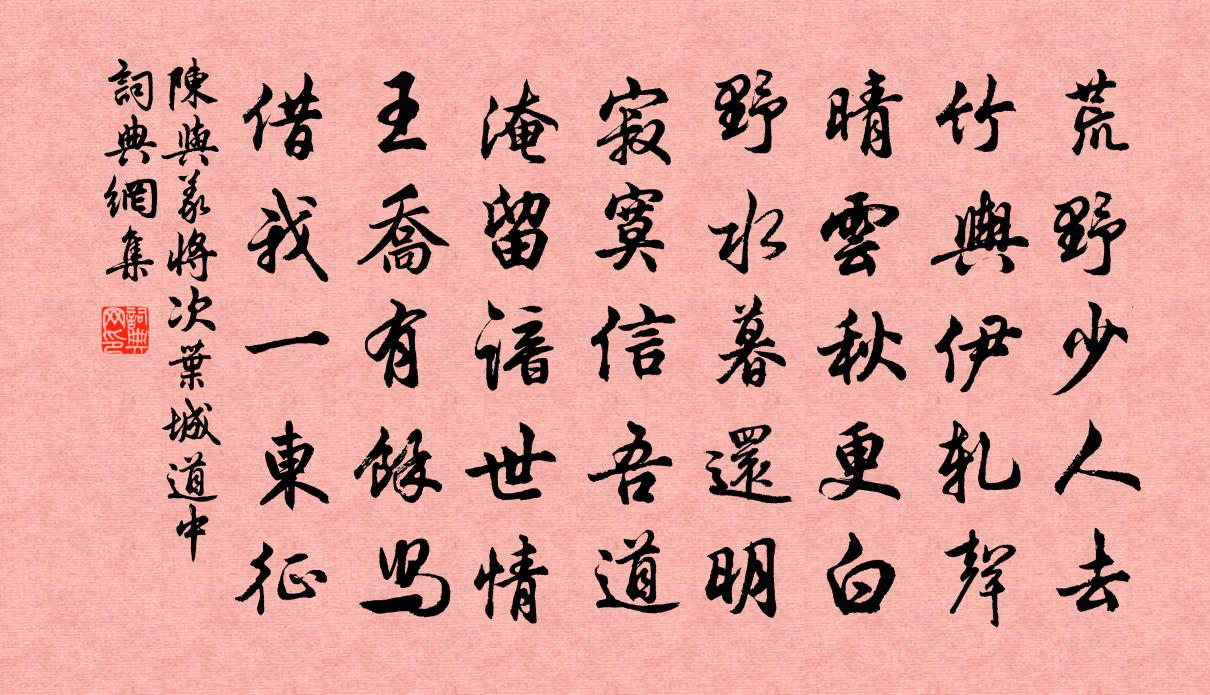 荒野少人去
竹輿伊軋聲
晴雲秋更白
野水暮還明
寂寞信吾道
淹留諳世情
王喬有餘舄
借我一東征
陳與義將次葉城道中
詞典網集
詞典网印